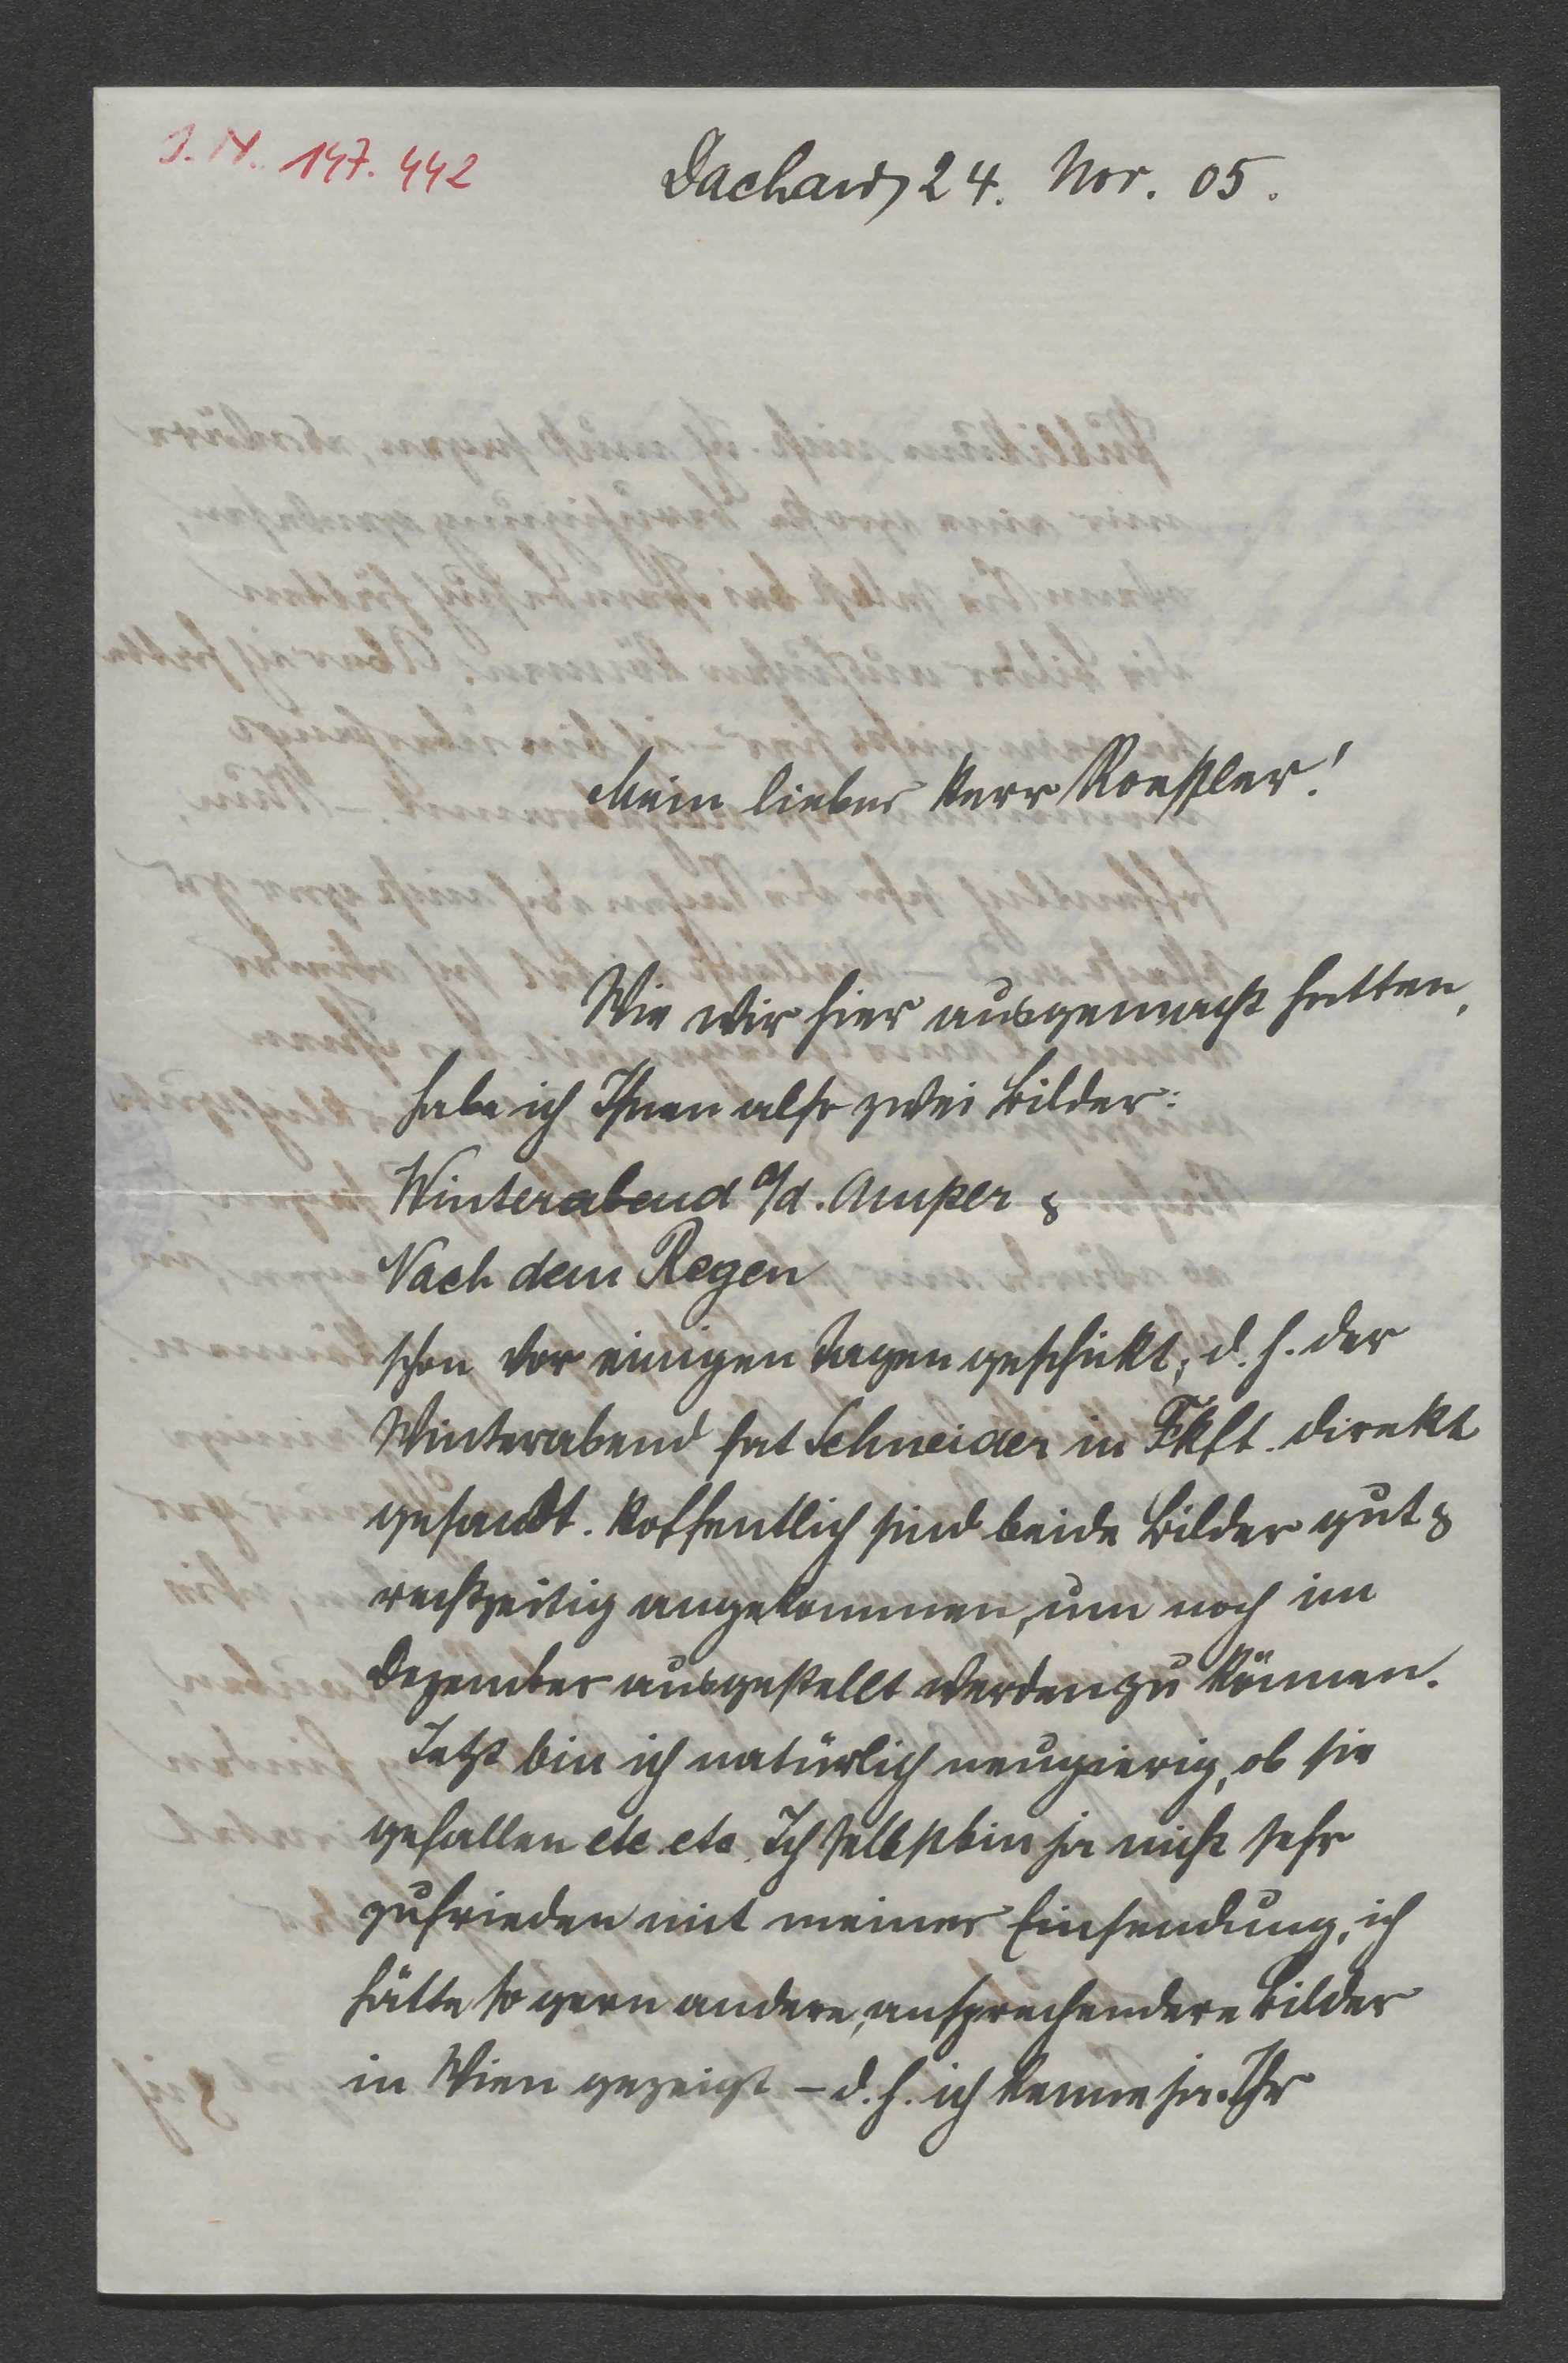 J. N. 147.442
Dachau, 24. Nov. 05.
Mein lieber Herr Roessler!
Wie wir hier ausgemacht hatten,
habe ich Ihnen also zwei Bilder:
Winterabend a/d. Amper &
Nach dem Regen
schon vor einigen Tagen geschickt, d. h. der
Winterabend hat Schneider in Fkft. direkt
gesandt. Hoffentlich sind beide Bilder gut &
rechtzeitig angekommen, um noch im
Dezember ausgestellt werden zu können.
Jetzt bin ich natürlich neugierig, ob sie
gefallen etc etc. Ich selbst bin ja nicht sehr
zufrieden mit meiner Einsendung, ich
hätte so gern andere, ansprechendere Bilder
in Wien gezeigt – d. h. ich kenne ja Ihr